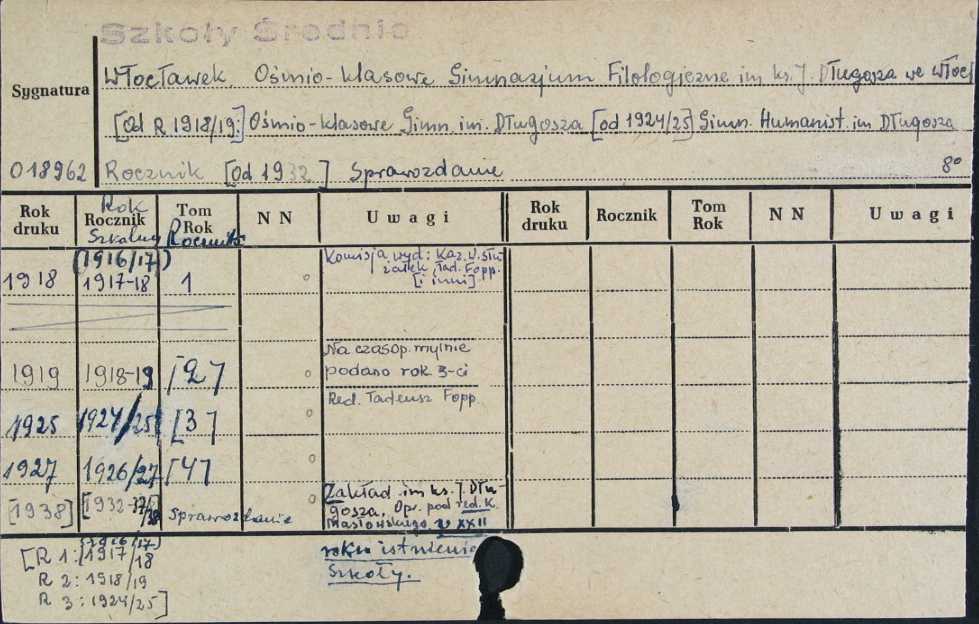 Szkoły Średnie
Sygnatura
Włocławek. Ośmio-klasowe Gimnazjum Filologiczne im ks. J. Długosza we Włocł
[od R 1918/19:] Ośmio-klasowe Gimn. im. Długosza [od 1924/25] Gimn. Humanist. im Długosza
018962 Rocznik [od 1932] Sprawozdanie 8º
Rok druku Rocznik Rok Szkolny Tom Rok Roczniki NN Uwagi Rok druku Rocznik Tom Rok NN Uwagi
1918 (1916/17) 1917-18 1 o Komisja wyd: Kaz. W.
Tad. Fopp.
[i inni]
1919 1918-19 [2] o Na czasop. mylnie
podano rok 3-ci
Red. Tadeusz Fopp.
1925 1924/25 [3] o
1927 1926/27 [4] o
[1938] [1932-37/38 Sprawozdanie o Zakład im ks. J. Dłu-
gosza. Opr. pod red. K.
Masłowskiego w XXII
roku istnienia
Szkoły.
[R 1: (1916/17) 1917/18
R 2: 1918/19
R 3: 1924/25]